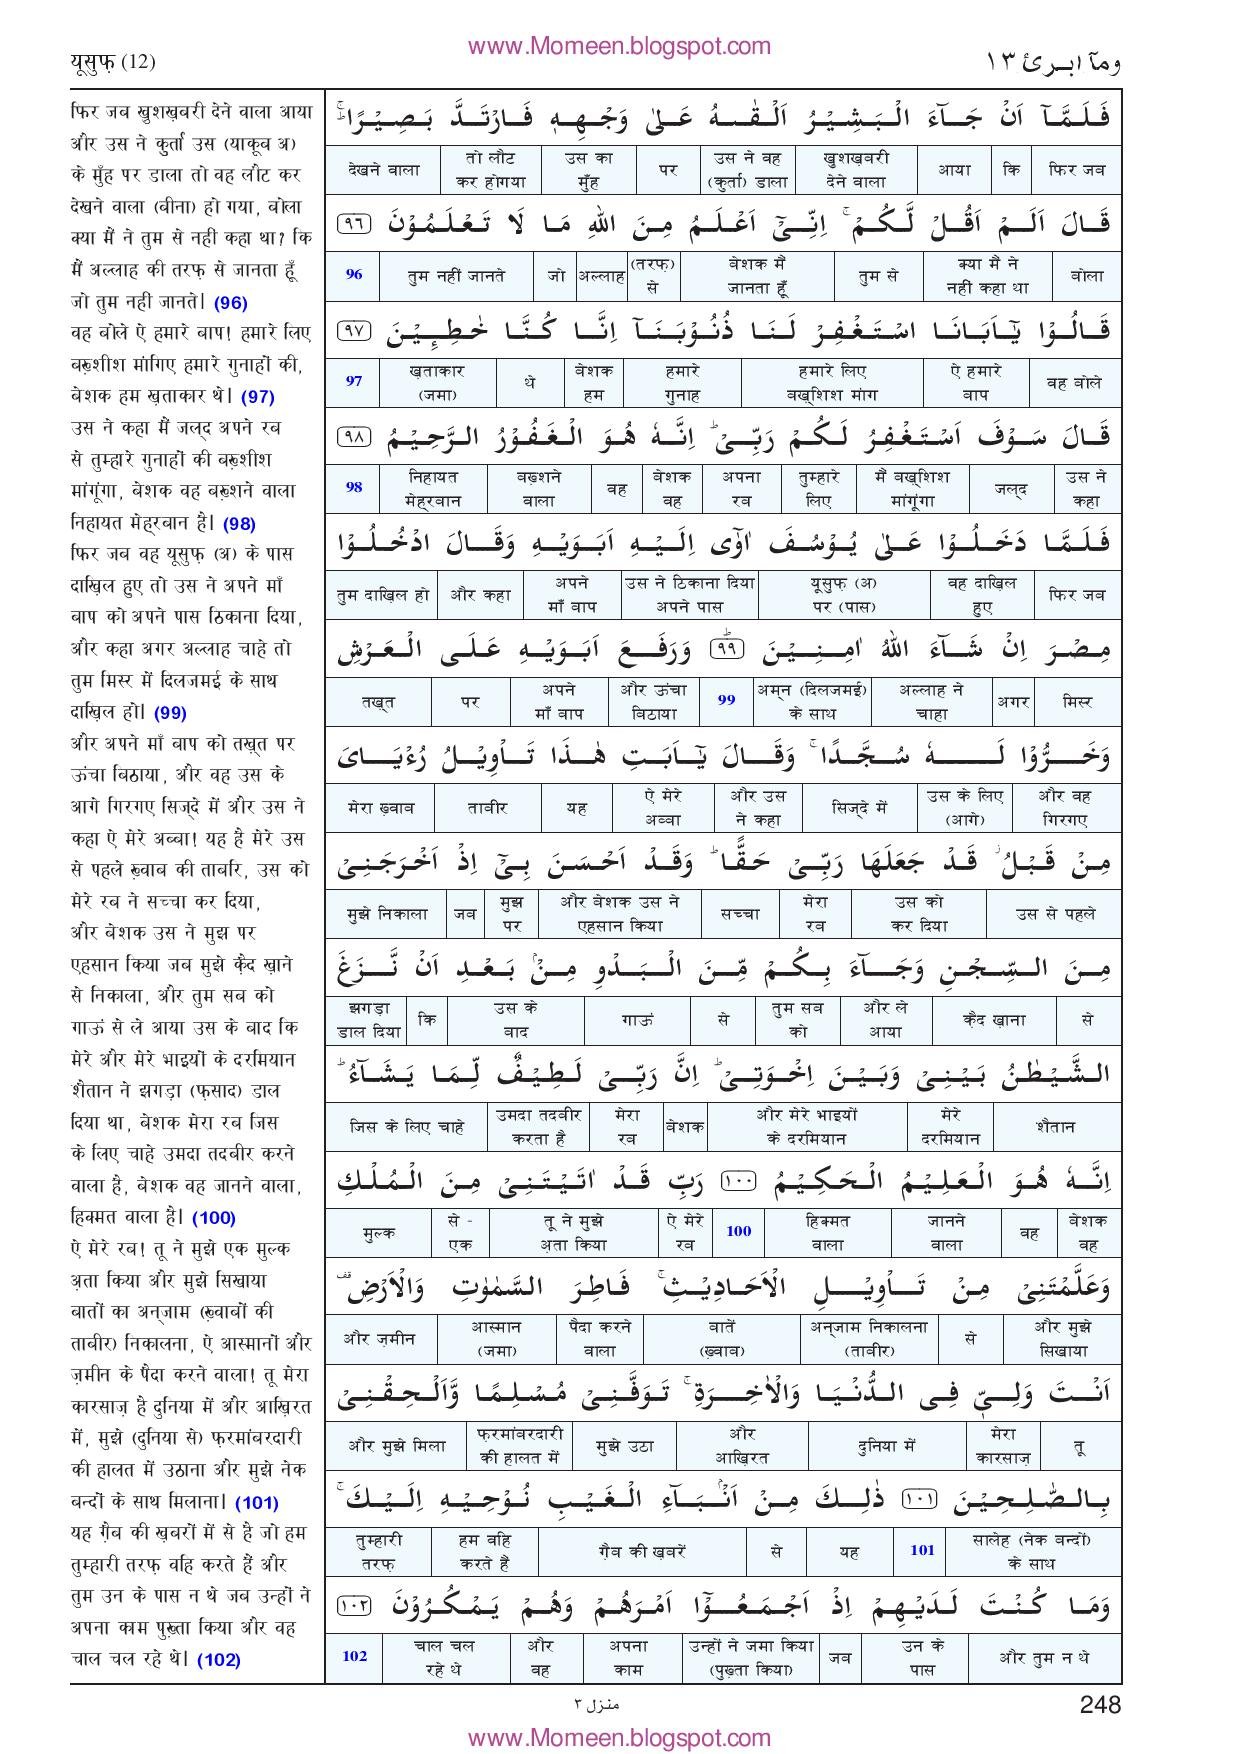 www.Momeen.blogspot.com
यूसुफ़ (12)
ومآ ابرئ ١٣
फिर जब खुशख़बरी देने वाला आया
और उस ने कुर्ता उस (याकूब अ)
के मुँह पर डाला तो वह लौट कर
देखने वाला (बीना) हो गया, बोला
क्या मैं ने तुम से नहीं कहा था? कि
मैं अल्लाह की तरफ़ से जानता हूँ
जो तुम नहीं जानते। (96)
वह बोले ऐ हमारे बाप! हमारे लिए
बख़्शीश मांगिए हमारे गुनाहों की,
बेशक हम ख़ताकार थे। (97)
उस ने कहा मैं जल्द अपने रब
से तुम्हारे गुनाहों की बख़्शीश
मांगूंगा, बेशक वह बख़्शने वाला
निहायत मेह्रबान है। (98)
फिर जब वह यूसुफ़ (अ) के पास
दाख़िल हुए तो उस ने अपने माँ
बाप को अपने पास ठिकाना दिया,
और कहा अगर अल्लाह चाहे तो
तुम मिस्र में दिलजमई के साथ
दाख़िल हो। (99)
और अपने माँ बाप को तख़्त पर
ऊंचा बिठाया, और वह उस के
आगे गिरगए सिज्दे में और उस ने
कहा ऐ मेरे अब्बा! यह है मेरे उस
से पहले ख़्वाब की ताबीर, उस को
मेरे रब ने सच्चा कर दिया,
और बेशक उस ने मुझ पर
एहसान किया जब मुझे क़ैद ख़ाने
से निकाला, और तुम सब को
गाऊं से ले आया उस के बाद कि
मेरे और मेरे भाइयों के दरमियान
शैतान ने झगड़ा (फ़साद) डाल
दिया था, बेशक मेरा रब जिस
के लिए चाहे उमदा तदबीर करने
वाला है, बेशक वह जानने वाला,
हिक्मत वाला है। (100)
ऐ मेरे रब! तू ने मुझे एक मुल्क
अ़ता किया और मुझे सिखाया
बातों का अन्जाम (ख़्वाबों की
ताबीर) निकालना, ऐ आस्मानों और
ज़मीन के पैदा करने वाला! तू मेरा
कारसाज़ है दुनिया में और आख़िरत
में, मुझे (दुनिया से) फ़रमांबरदारी
की हालत में उठाना और मुझे नेक
बन्दों के साथ मिलाना। (101)
यह ग़ैब की ख़बरों में से है जो हम
तुम्हारी तरफ़ वहि करते हैं और
तुम उन के पास न थे जब उन्हों ने
अपना काम पुख़्ता किया और वह
चाल चल रहे थे। (102)
فَلَمَّآ اَنْ جَآءَ الْبَشِيْرُ اَلْقٰىهُ عَلٰى وَجْهِهٖ فَارْتَدَّ بَصِيْرًا ۚؕ
फिर जब कि आया खुशख़बरी देने वाला उस ने वह (कुर्ता) डाला पर उस का मुँह तो लौट कर होगया देखने वाला
قَالَ اَلَمْ اَقُلْ لَّكُمْ ۚ اِنِّىْٓ اَعْلَمُ مِنَ اللّٰهِ مَا لَا تَعْلَمُوْنَ ٩٦
बोला क्या मैं ने नहीं कहा था तुम से बेशक मैं जानता हूँ (तरफ़) से अल्लाह जो तुम नहीं जानते 96
قَالُوْا يٰٓاَبَانَا اسْتَغْفِرْ لَنَا ذُنُوْبَنَآ اِنَّا كُنَّا خٰطِـِٕيْنَ ٩٧
वह बोले ऐ हमारे बाप हमारे लिए बख़्शिश मांग हमारे गुनाह बेशक हम थे ख़ताकार (जमा) 97
قَالَ سَوْفَ اَسْتَغْفِرُ لَكُمْ رَبِّىْ ؕ اِنَّهٗ هُوَ الْغَفُوْرُ الرَّحِيْمُ ٩٨
उस ने कहा जल्द मैं बख़्शिश मांगूंगा तुम्हारे लिए अपना रब बेशक वह वह बख़्शने वाला निहायत मेह्रबान 98
فَلَمَّا دَخَلُوْا عَلٰى يُوْسُفَ اٰوٰٓى اِلَيْهِ اَبَوَيْهِ وَقَالَ ادْخُلُوْا
फिर जब वह दाख़िल हुए यूसुफ़ (अ) पर (पास) उस ने ठिकाना दिया अपने पास अपने माँ बाप और कहा तुम दाख़िल हो
مِصْرَ اِنْ شَآءَ اللّٰهُ اٰمِنِيْنَ ٩٩ؕ وَرَفَعَ اَبَوَيْهِ عَلَى الْعَرْشِ
मिस्र अगर अल्लाह ने चाहा अम्न (दिलजमई) के साथ 99 और ऊंचा बिठाया अपने माँ बाप पर तख़्त
وَخَرُّوْا لَهٗ سُجَّدًا ۚ وَقَالَ يٰٓاَبَتِ هٰذَا تَاْوِيْلُ رُءْيَاىَ
और वह गिरगए उस के लिए (आगे) सिज्दे में और उस ने कहा ऐ मेरे अब्बा यह ताबीर मेरा ख़्वाब
مِنْ قَبْلُ ۫ قَدْ جَعَلَهَا رَبِّىْ حَقًّا ؕ وَقَدْ اَحْسَنَ بِىْٓ اِذْ اَخْرَجَنِىْ
उस से पहले उस को कर दिया मेरा रब सच्चा और बेशक उस ने एहसान किया मुझ पर जब मुझे निकाला
مِنَ السِّجْنِ وَجَآءَ بِكُمْ مِّنَ الْبَدْوِ مِنْۢ بَعْدِ اَنْ نَّزَغَ
से क़ैद ख़ाना और ले आया तुम सब को से गाऊं उस के बाद कि झगड़ा डाल दिया
الشَّيْطٰنُ بَيْنِىْ وَبَيْنَ اِخْوَتِىْ ؕ اِنَّ رَبِّىْ لَطِيْفٌ لِّمَا يَشَآءُ ؕ
शैतान मेरे दरमियान और मेरे भाइयों के दरमियान बेशक मेरा रब उमदा तदबीर करता है जिस के लिए चाहे
اِنَّهٗ هُوَ الْعَلِيْمُ الْحَكِيْمُ ١٠٠ رَبِّ قَدْ اٰتَيْتَنِىْ مِنَ الْمُلْكِ
बेशक वह वह जानने वाला हिक्मत वाला 100 ऐ मेरे रब तू ने मुझे अ़ता किया से - एक मुल्क
وَعَلَّمْتَنِىْ مِنْ تَاْوِيْلِ الْاَحَادِيْثِ ۚ فَاطِرَ السَّمٰوٰتِ وَالْاَرْضِ قف
और मुझे सिखाया से अन्जाम निकालना (ताबीर) बातें (ख़्वाब) पैदा करने वाला आस्मान (जमा) और ज़मीन
اَنْتَ وَلِىّٖ فِى الدُّنْيَا وَالْاٰخِرَةِ ۚ تَوَفَّنِىْ مُسْلِمًا وَّاَلْحِقْنِىْ
तू मेरा कारसाज़ दुनिया में और आख़िरत मुझे उठा फ़रमांबरदारी की हालत में और मुझे मिला
بِالصّٰلِحِيْنَ ١٠١ ذٰلِكَ مِنْ اَنْۢبَآءِ الْغَيْبِ نُوْحِيْهِ اِلَيْكَ ۚ
सालेह (नेक बन्दों) के साथ 101 यह से ग़ैब की ख़बरें हम वहि करते हैं तुम्हारी तरफ़
وَمَا كُنْتَ لَدَيْهِمْ اِذْ اَجْمَعُوْٓا اَمْرَهُمْ وَهُمْ يَمْكُرُوْنَ ١٠٢
और तुम न थे उन के पास जब उन्हों ने जमा किया (पुख़्ता किया) अपना काम और वह चाल चल रहे थे 102
منزل ٣
248
www.Momeen.blogspot.com